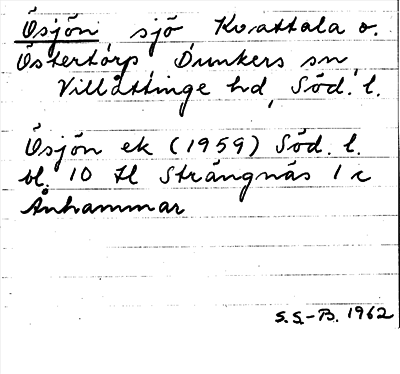 Ösjön sjö Kvattala o.
Östertorp Dunkers sn,
Villåttinge hd, Söd. l.
Ösjön ek (1959) Söd. l.
bl. 10 H Strängnäs 1 c
Ånhammar
S.S.-B. 1962